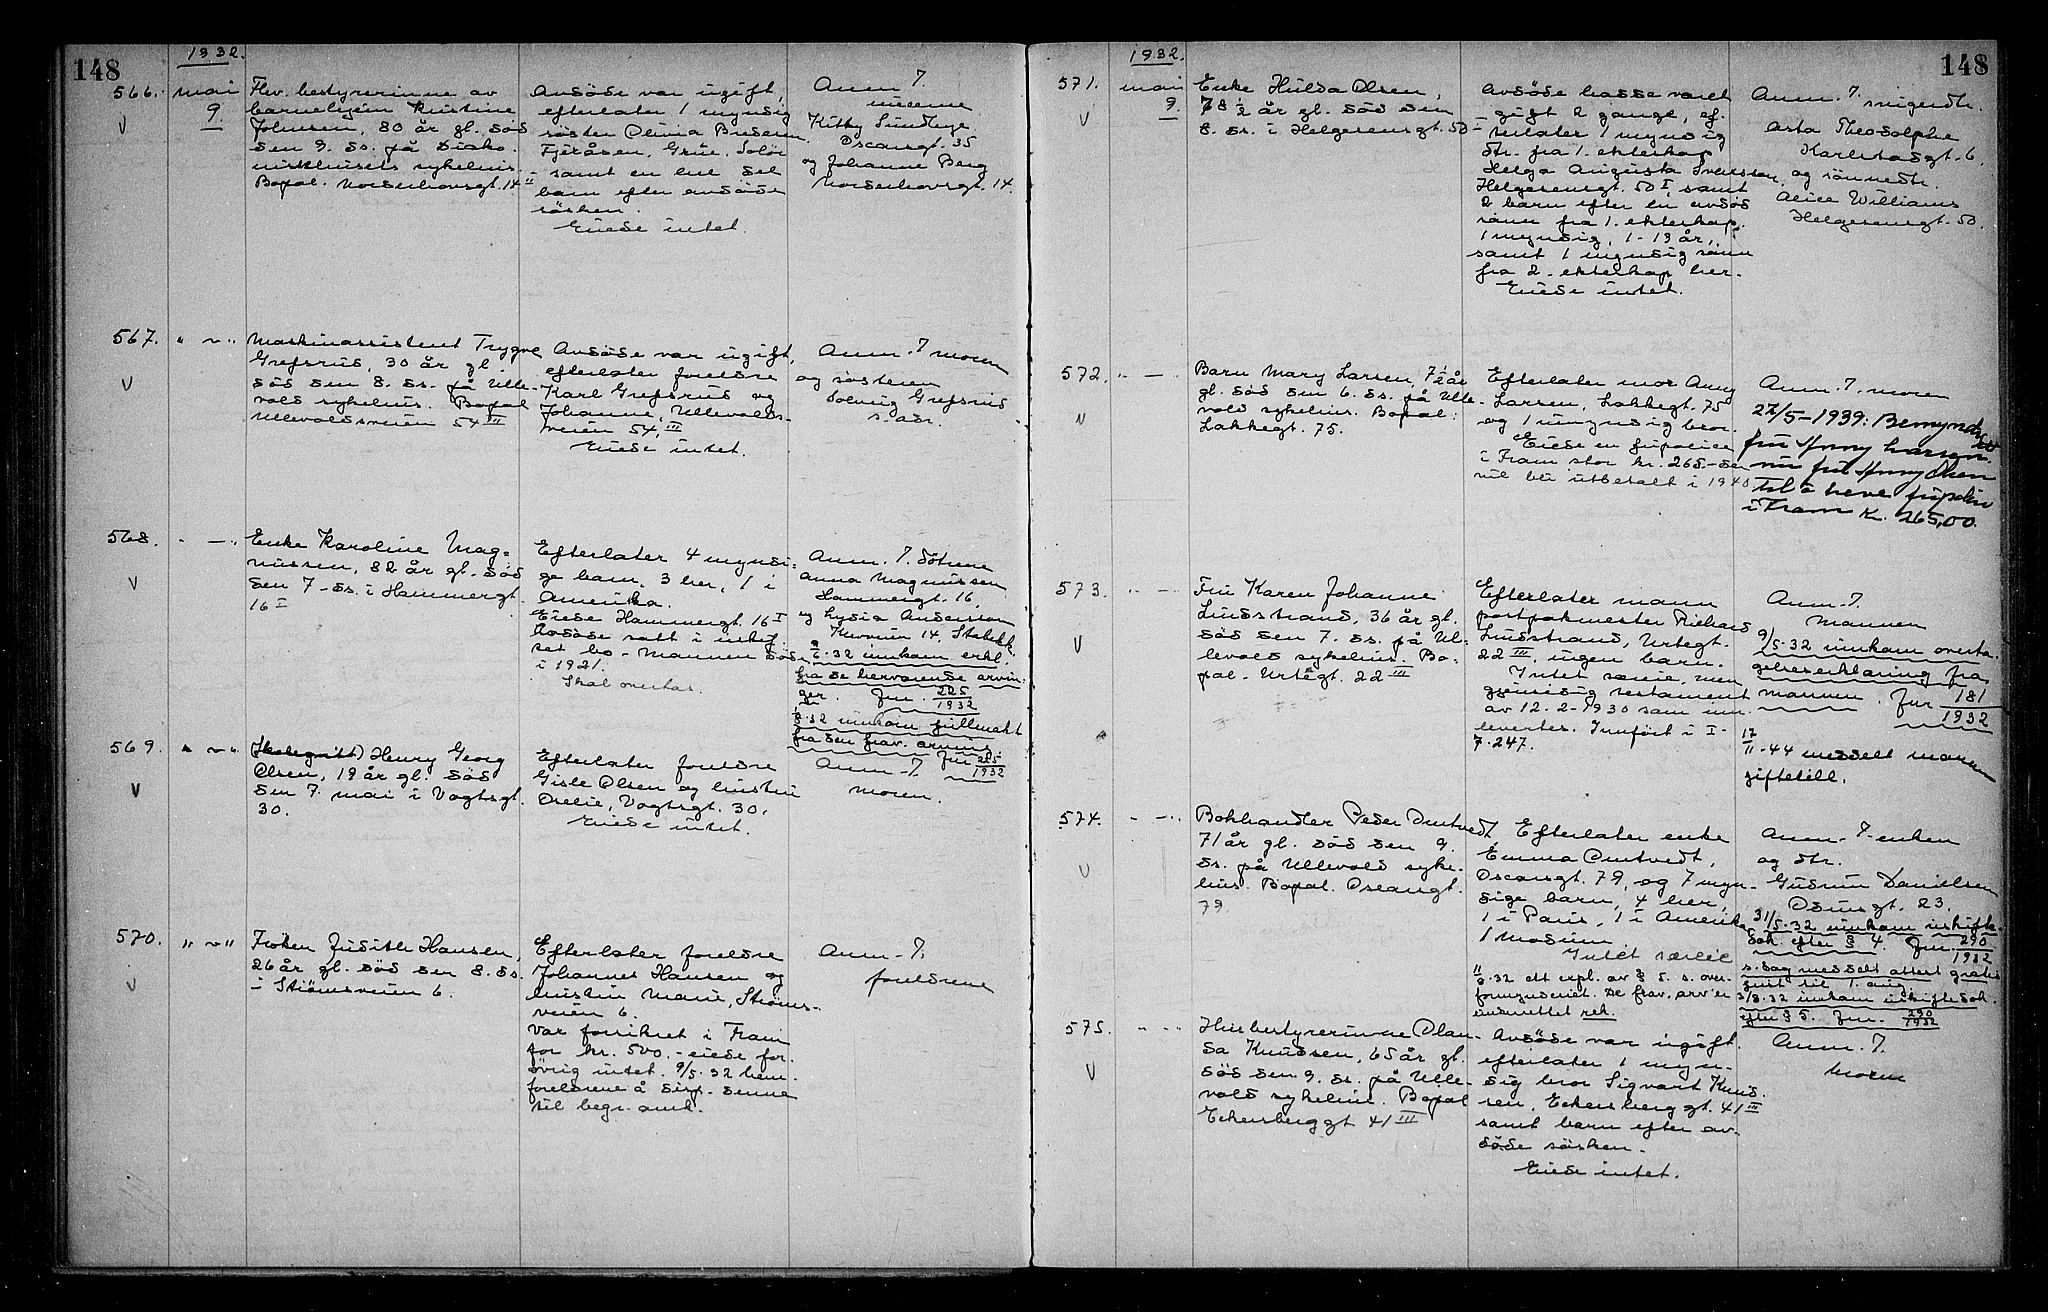 148
1932.
566.
mai
9.
Fhv. bestyrerinne av
barnehjem Kristine
Johnsen, 80 år gl. död
den 9. ds. på Diako-
nissehusets sykehus.
Bopæl. Norderhovsgt. 14 II
Avdöde var ugift,
efterlater 1 myndig
söster Olivia
Grue, Solör
samt en hel del
barn efter avdöde
sösken.
Eiede intet.
Anm. 7.
niecene
Kitty
Oscarsgt. 35
og Johanne Berg
Norderhovsgt. 14.
567.
" " "
Maskinassistent Trygve
Grefsrud, 30 år gl.
död den 8. ds. på Ulle-
vold sykehus. Bopæl
Ullevoldsveien 54 III
Avdöde var ugift,
efterlater foreldre
Karl Grefsrud og
Johanne, Ullevolds-
veien 54, III
Eiede intet.
Anm. 7 moren
og sösteren
Solveig Grefsrud
s. adr.
568.
" — "
Enke Karoline Mag-
nussen, 82 år gl. död
den 7. ds. i Hammergt.
16 I
Efterlater 4 myndi-
ge barn, 3 her, 1 i
Amerika.
Eiede Hammergt. 16 I
Avdöde satt i uskif-
tet bo - Mannen död
i 1921.
Skal overtas.
Anm. 7. dötrene
Anna Magnussen
Hammergt. 16,
og Lydia Anderssen
14, Stabekk.
6.32 innkom erkl.
fra de herværende arvin-
ger. Jnr. 225/1932
8.32 innkom fullmakt
fra den frav. arving.
Jnr 225/1932
569.
" " "
Henry Georg
Olsen, 19 år gl. död
den 7. mai i Vogtsgt.
30.
Efterlater foreldre
Gisle Olsen og hustru
Vogtsgt. 30.
Eiede intet.
Anm. 7.
moren.
570.
" " "
Fröken Judith Hansen,
26 år gl. död den 8. ds.
i Strömsveien 6.
Efterlater foreldre
Johannes Hansen og
hustru Marie, Ströms-
veien 6.
Var forsikret i Fram
for kr. 500.- eiede for-
övrig intet. 9/5.32 bem.
foreldrene å disp. denne
til begr. omk.
Anm. 7.
foreldrene
148
1932.
571.
mai
9.
Enke Hulda Olsen,
78 1/2 år gl. död den
8. ds. i Helgesensgt. 50 I
Avdöde hadde været
gift 2 gange, ef-
terlater 1 myndig
dtr. fra 1. ekteskap
Helga Augusta Svensson,
Helgesensgt. 50 I, samt
2 barn efter en avdöd
sönn fra 1. ekteskap.
1 myndig, 1 - 19 år,
samt 1 myndig sönn
fra 2. ekteskap her.
Eiede intet.
Anm. 7. svigerdtr.
Asta Theodolphe
Karlstadgt. 6.
og sönnedtr.
Alice Williams
Helgesensgt. 50.
572.
" — "
Barn Mary Larsen, 7 1/2 år
gl. död den 6. ds. på Ulle-
vold sykehus. Bopæl:
Lakkegt. 75.
Efterlater mor Anny
Larsen, Lakkegt. 75
og 1 umyndig bror.
Eiede en fripolice
i Fram stor kr. 265.- den
vil bli utbetalt i 1940
Anm. 7. moren
27/5-1939: Bemyndiget
fru Anny Larsen
nu fru Anny Olsen
til å heve fripolise
i Fram kr. 265,00.
573.
" — "
Fru Karen Johanne
Lindstrand, 36 år gl.
död den 7. ds. på Ul-
levold sykehus. Bo-
pæl. Urtegt. 22 III
Efterlater mann
portpakmester Richard
Lindstrand, Urtegt.
22 III, ingen barn.
Intet særeie, men
gjensidig testament
av 12.2-1930 som inn-
levertes. Innfört i I-
7.247.
Anm. 7.
Mannen
9/5-32 innkom overta-
gelseserklæring fra
mannen. Jnr 181/1932
17/11-44 meddelt mannen
giftetill.
574.
" — "
Bokhandler Peder Omtvedt
71 år gl. död den 9.
ds. på Ullevold syke-
hus. Bopæl. Oscarsgt.
79.
Efterlater enke
Emma Omtvedt,
Oscarsgt. 79, og 7 myn-
dige barn, 4 her,
1 i Paris, 1 i Amerika
1 Modum
Intet særeie
11/8.32 ett expl. av § 5. s. over-
formynderiet. De frav. arv. er
underrettet rek.
Anm. 7. enken
og dtr.
Gudrun Danielsen
Odinsgt. 23.
31/5.32 innkom uskifte-
dok. efter § 4 Jnr. 290/1932
s. dag meddelt attest gratis
3/8.32 innkom uskiftedok.
efter § 5. Jnr. 290/1932
575.
" — "
Husbestyrerinne Olau-
da Knudsen, 65 år gl.
död den 9. ds. på Ulle-
vold sykehus. Bopæl
Eckersberggt 41 III
Avdöde var ugift.
efterlater 1 myn-
dig bror Sigvart Knud-
sen, Eckersberggt. 41 III
samt barn efter av-
döde sösken.
Eiede intet.
Anm. 7.
broren